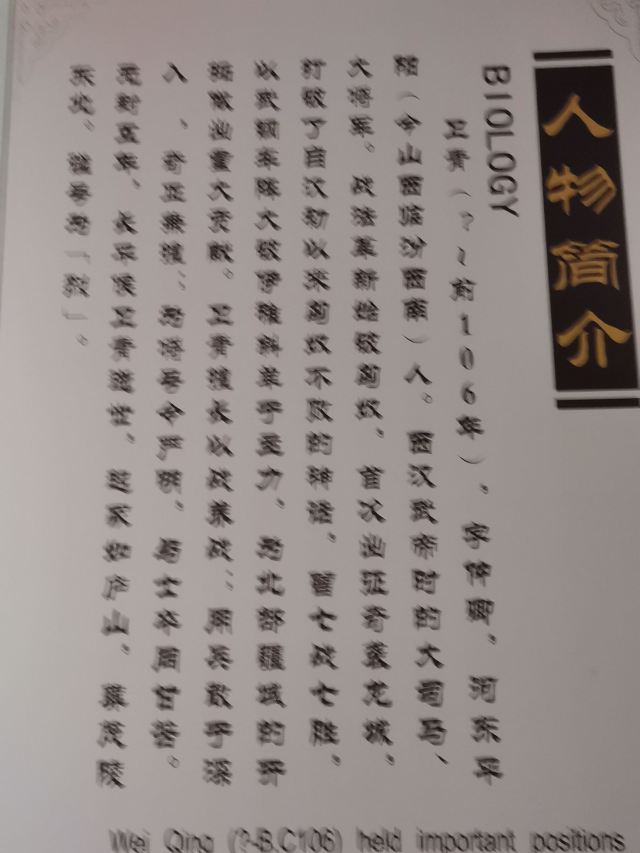 人物简介
BIOLOGY
卫青（?~前106年）、字仲卿，河东平
阳（今山西临汾西南）人。西汉武帝时的大司马、
大将军。战法革新始破匈奴，首次出征奇袭龙城，
打破了自汉初以来匈奴不败的神话，曾七战七胜，
以武钢车阵大破伊稚斜单于主力，为北部疆域的开
拓做出重大贡献。卫青擅长以战养战，用兵敢于深
入，奇正兼擅；为将号令严明，与士卒同甘苦。
元封五年，长平侯卫青逝世，起冢如庐山，葬茂陵
东北，谥号为「烈」。
Wei Qing (?-B.C106) held important positions